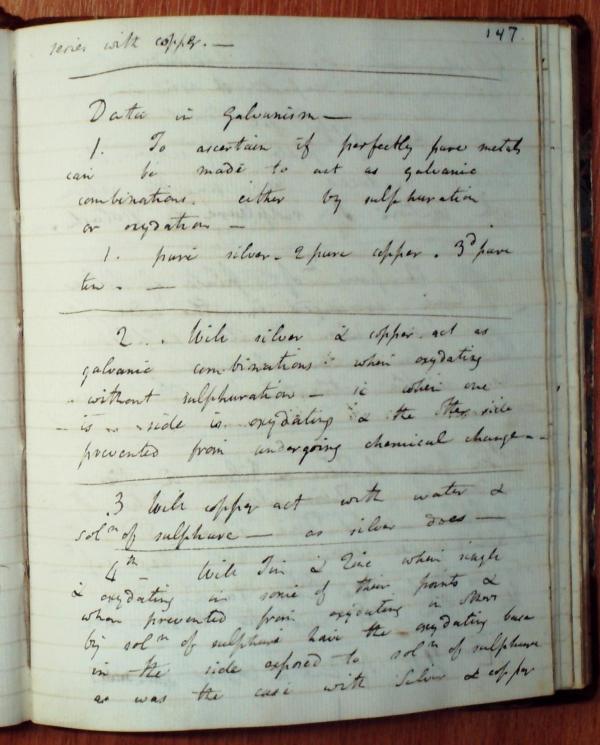 147
series with copper. —
Data in Galvanism —
1. To ascertain if perfectly pure metals
can be made to act as galvanic
combinations. either by sulphuration
or oxydation —
1. pure silver - 2 pure copper . 3d pure
tin . —
2 . . Will silver & copper act as
galvanic combinations when oxydating
without sulphuration — ie when one
is side is oxydating & the other side
prevented from undergoing chemical change - -
.3 Will copper act with water &
soln of sulphure — as silver does —
4th — Will Tin & Zinc when single
& oxydating in some of their points &
when prevented from oxydating in others
by soln of sulphure have the oxydating base
in the side exposed to soln of sulphure
as was the case with Silver & copper